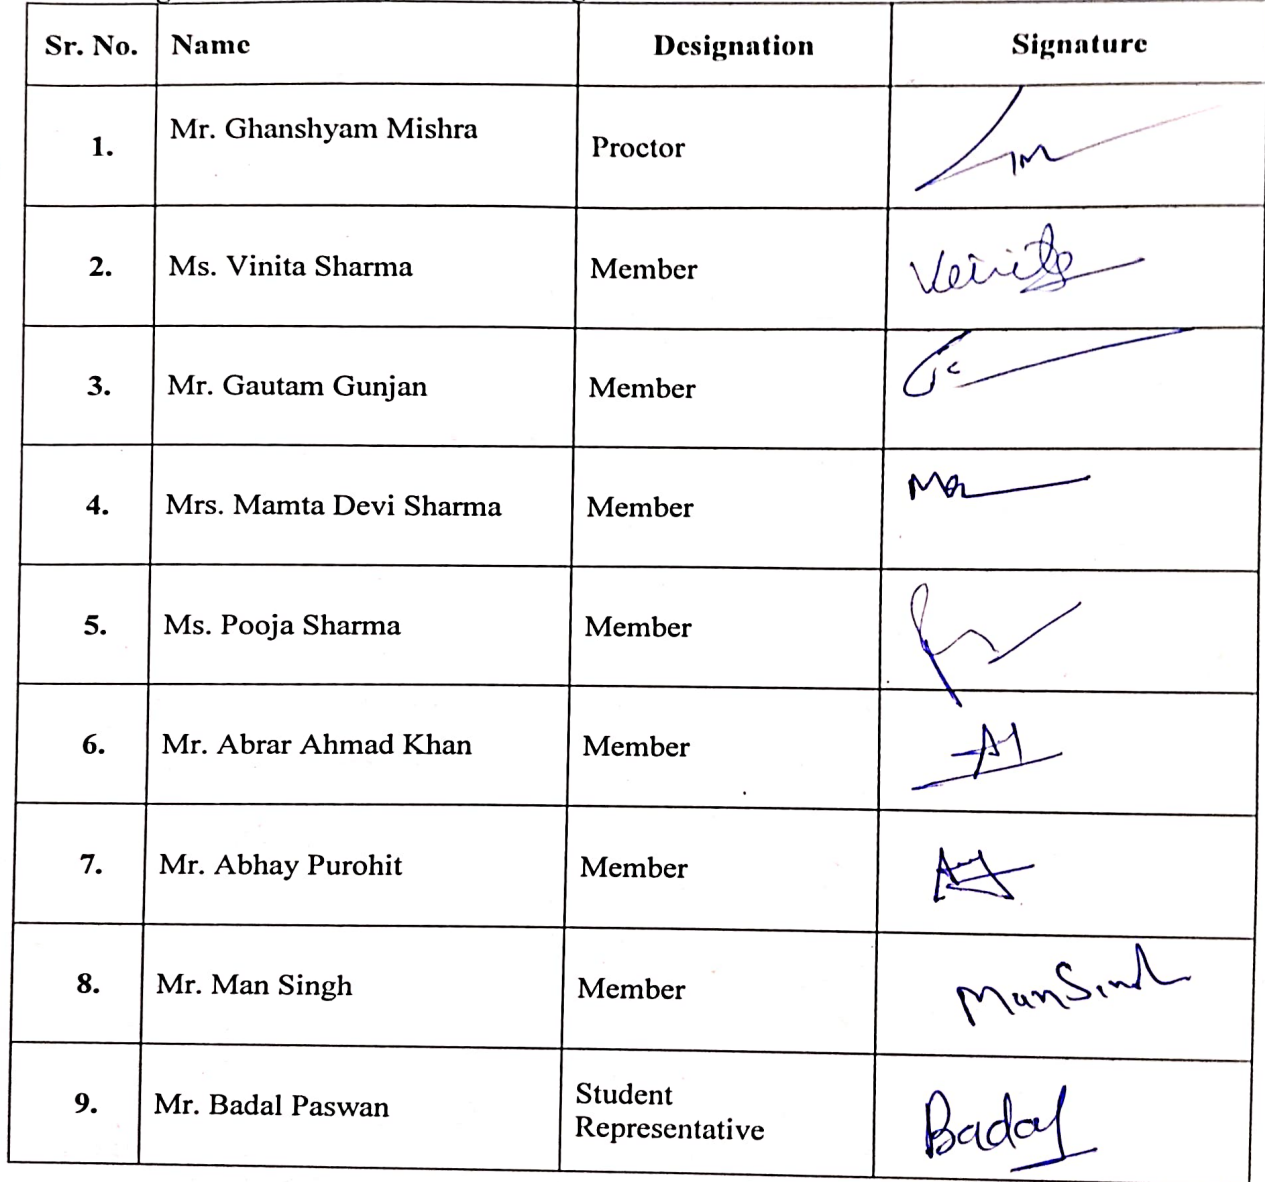 Sr. No. Name Designation Signature
1. Mr. Ghanshyam Mishra Proctor
2. Ms. Vinita Sharma Member Vinita
3. Mr. Gautam Gunjan Member
4. Mrs. Mamta Devi Sharma Member
5. Ms. Pooja Sharma Member
6. Mr. Abrar Ahmad Khan Member
7. Mr. Abhay Purohit Member
8. Mr. Man Singh Member Man Singh
9. Mr. Badal Paswan Student
Representative Badal